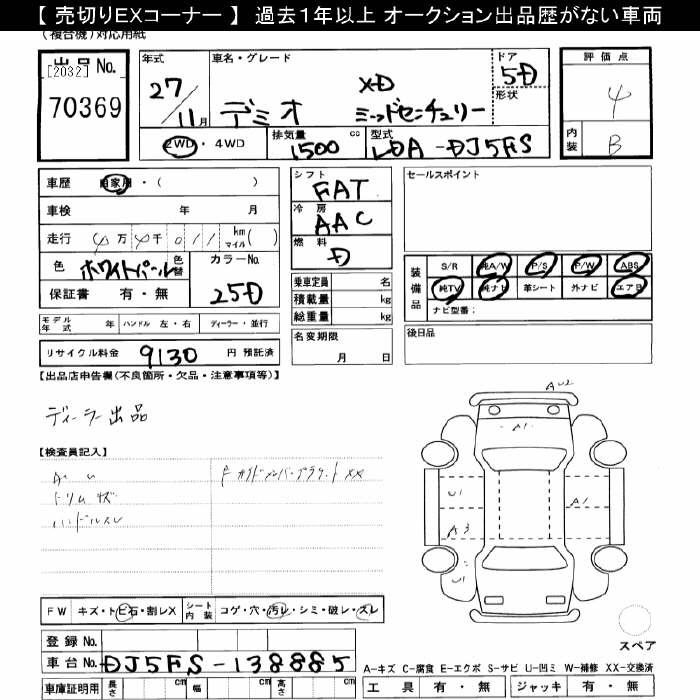 【 売切りEXコーナー 】 過去1年以上 オークション出品歴がない車両
(複合機)対応用紙
出品No.
[2032]
70369
年式
27/11月
車名・グレード
デミオ
XD
ミッドセンチュリー
ドア
5D
形状
評価点
4
内装
B
2WD・4WD
排気量
1500 cc
型式
LDA-DJ5FS
車歴 自家用・( )
車検 年 月
走行 4万 4千 011 km マイル ( )
色 ホワイトパール 色替
カラーNo.
25D
保証書 有・無
モデル年式 年 ハンドル 左・右 ディーラー・並行
リサイクル料金 9130 円 預託済
シフト
FAT
冷房
AAC
燃料
D
乗車定員 名
積載量 kg
総重量 kg
名変期限
月 日
セールスポイント
装備品
S/R 純A/W P/S P/W ABS
純TV 純ナビ 革シート 外ナビ エアB
ナビ型番:
後日品
【出品店申告欄(不良箇所・欠品・注意事項等)】
ディーラー出品
【検査員記入】
トリムキズ
ハンドルスレ
AU2
A1
U1
A1
A3
U1
FW キズ・トビ石・割レX シート内装 コゲ・穴・汚レ・シミ・破レ・スレ
スペア
登録No.
車台No. DJ5FS-138885
A-キズ C-腐食 E-エクボ S-サビ U-凹ミ W-補修 XX-交換済
車庫証明用 長さ cm 幅 cm 高さ cm
工具 有・無 ジャッキ 有・無